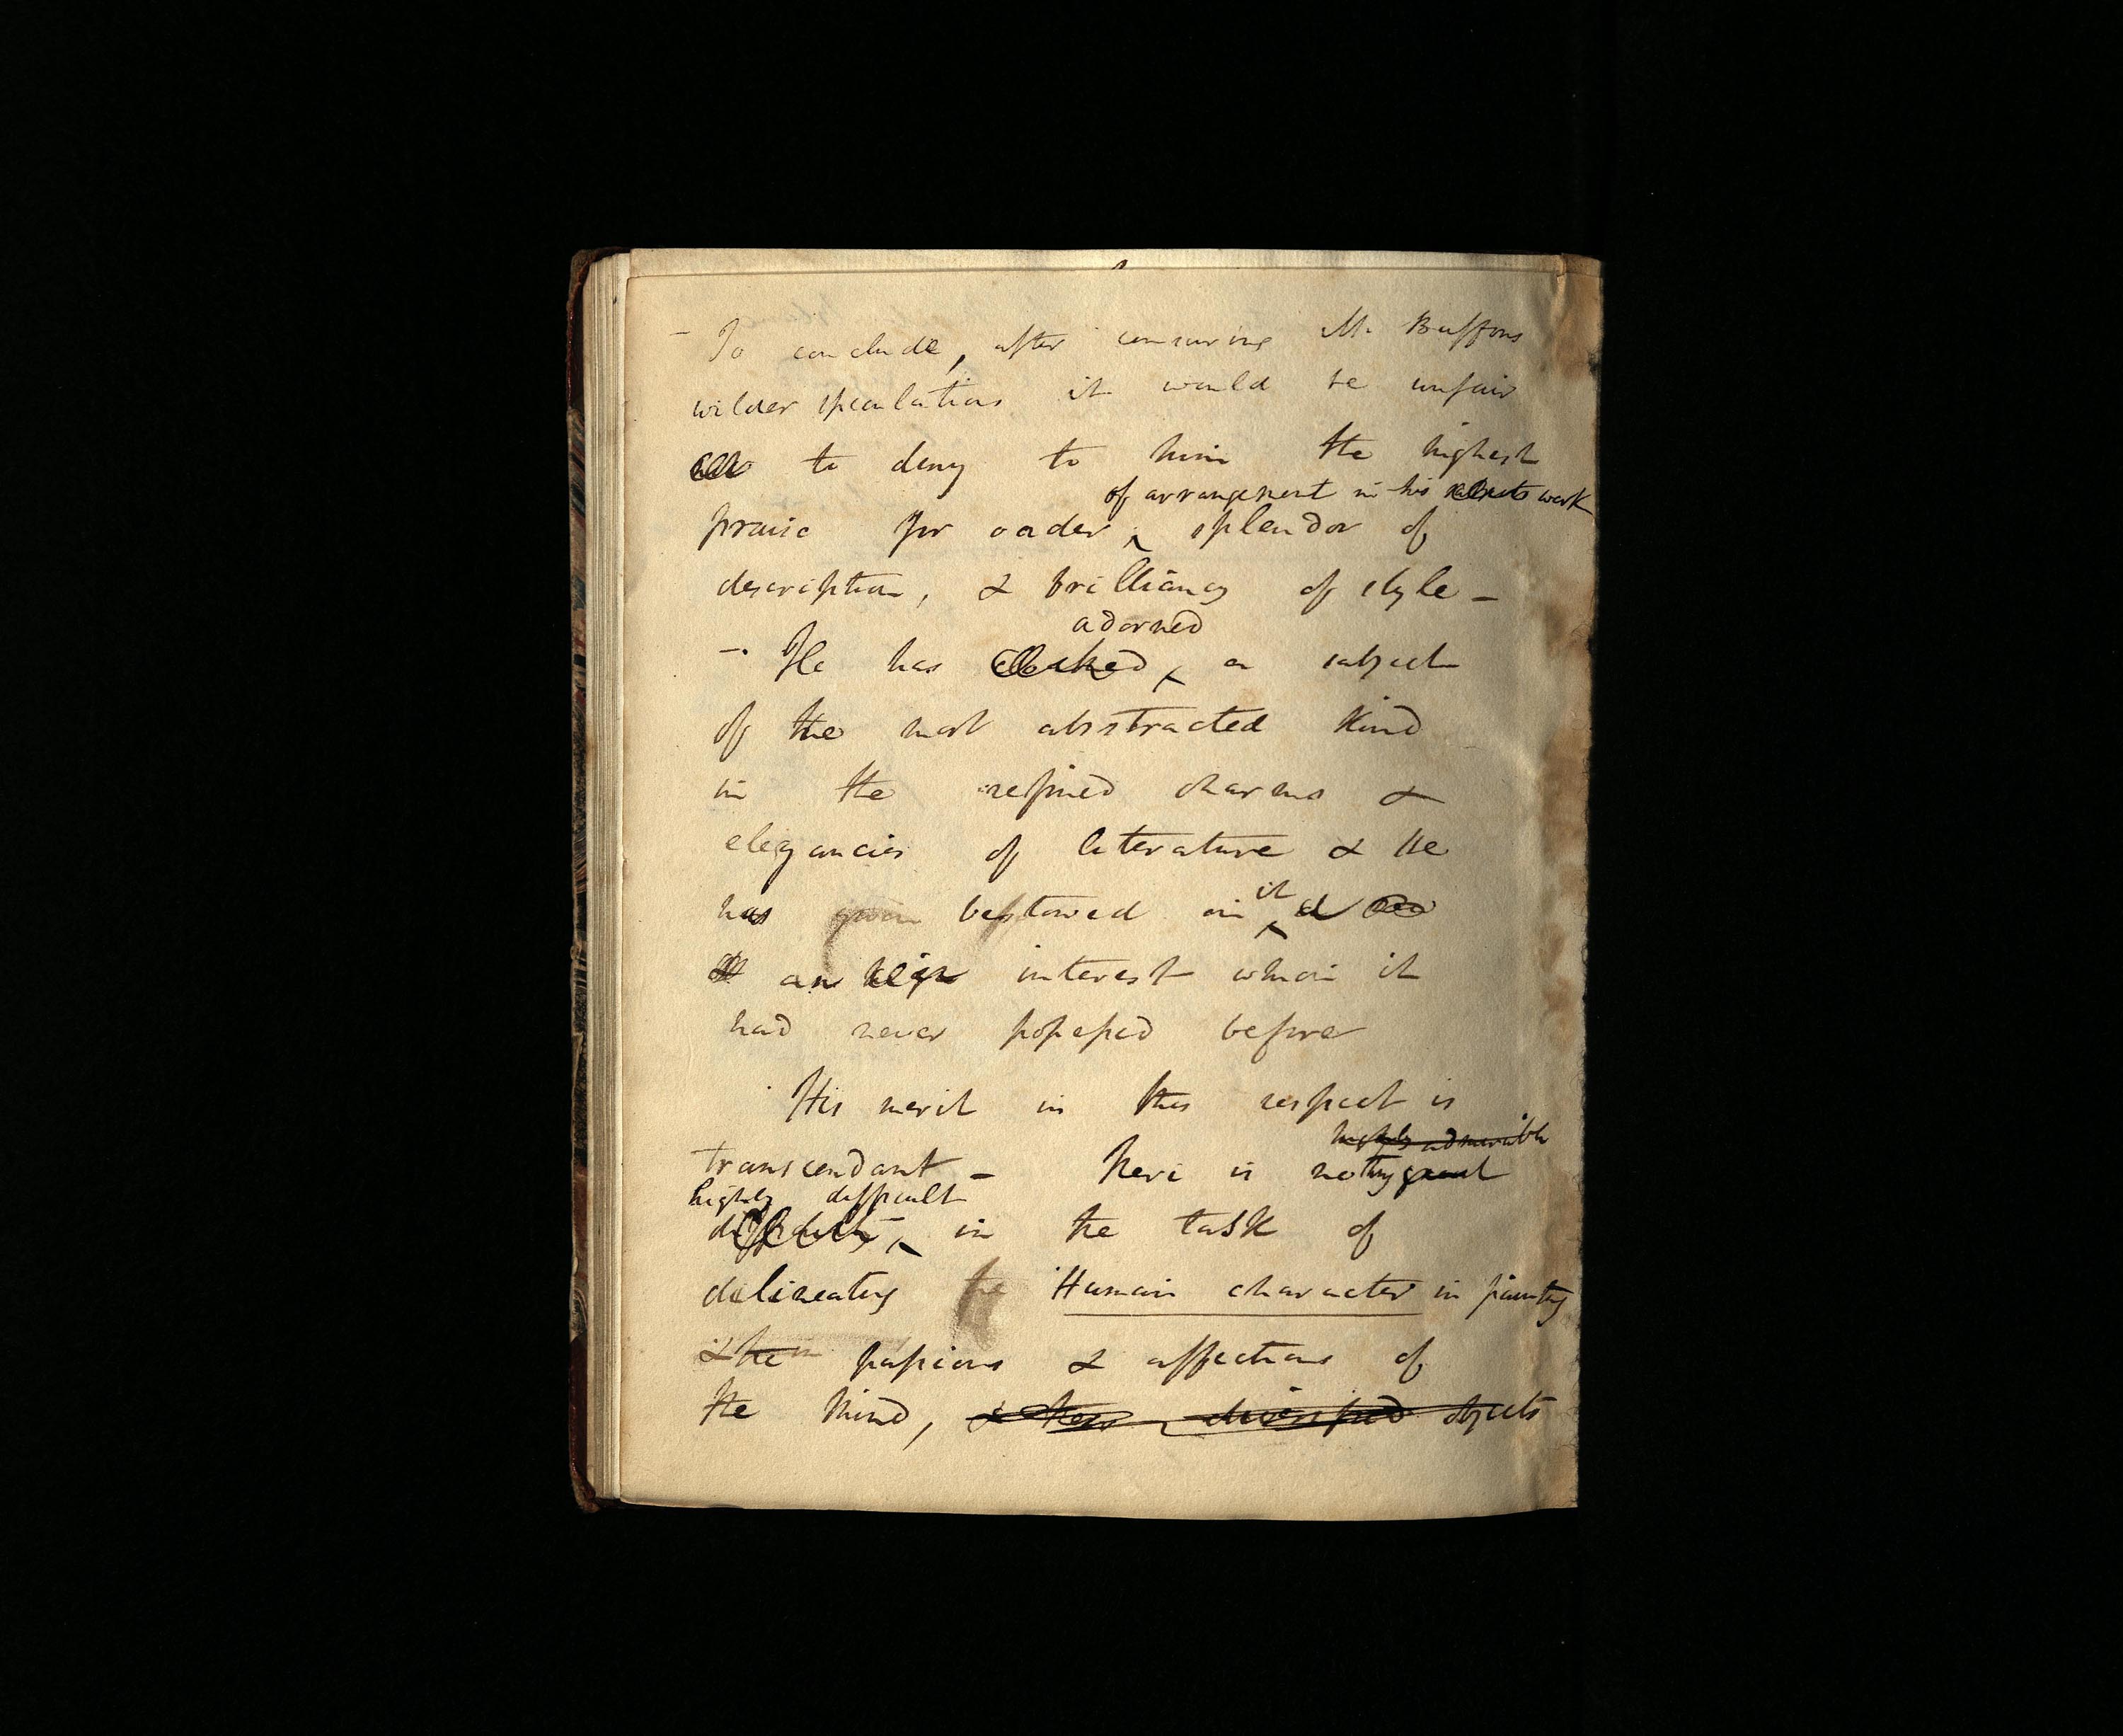 – To conclude, after censuring M. Buffons
wilder speculations it would be unfair
to deny to him the highest
of arrangement in his work
praise for order, splendor of
description, & brilliancy of style –
adorned
–. He has cloathed, a subject
of the most abstracted kind
in the refined charms &
elegancies of literature & He
it
has given bestowed on
an high interest which it
had never possessed before
His merit in this respect is
highly admirable
transcendant – there is nothing great
highly difficult
difficulty, in the task of
delineating the Human character in painting
& the passions & affections of
the Mind, & these diversified objects